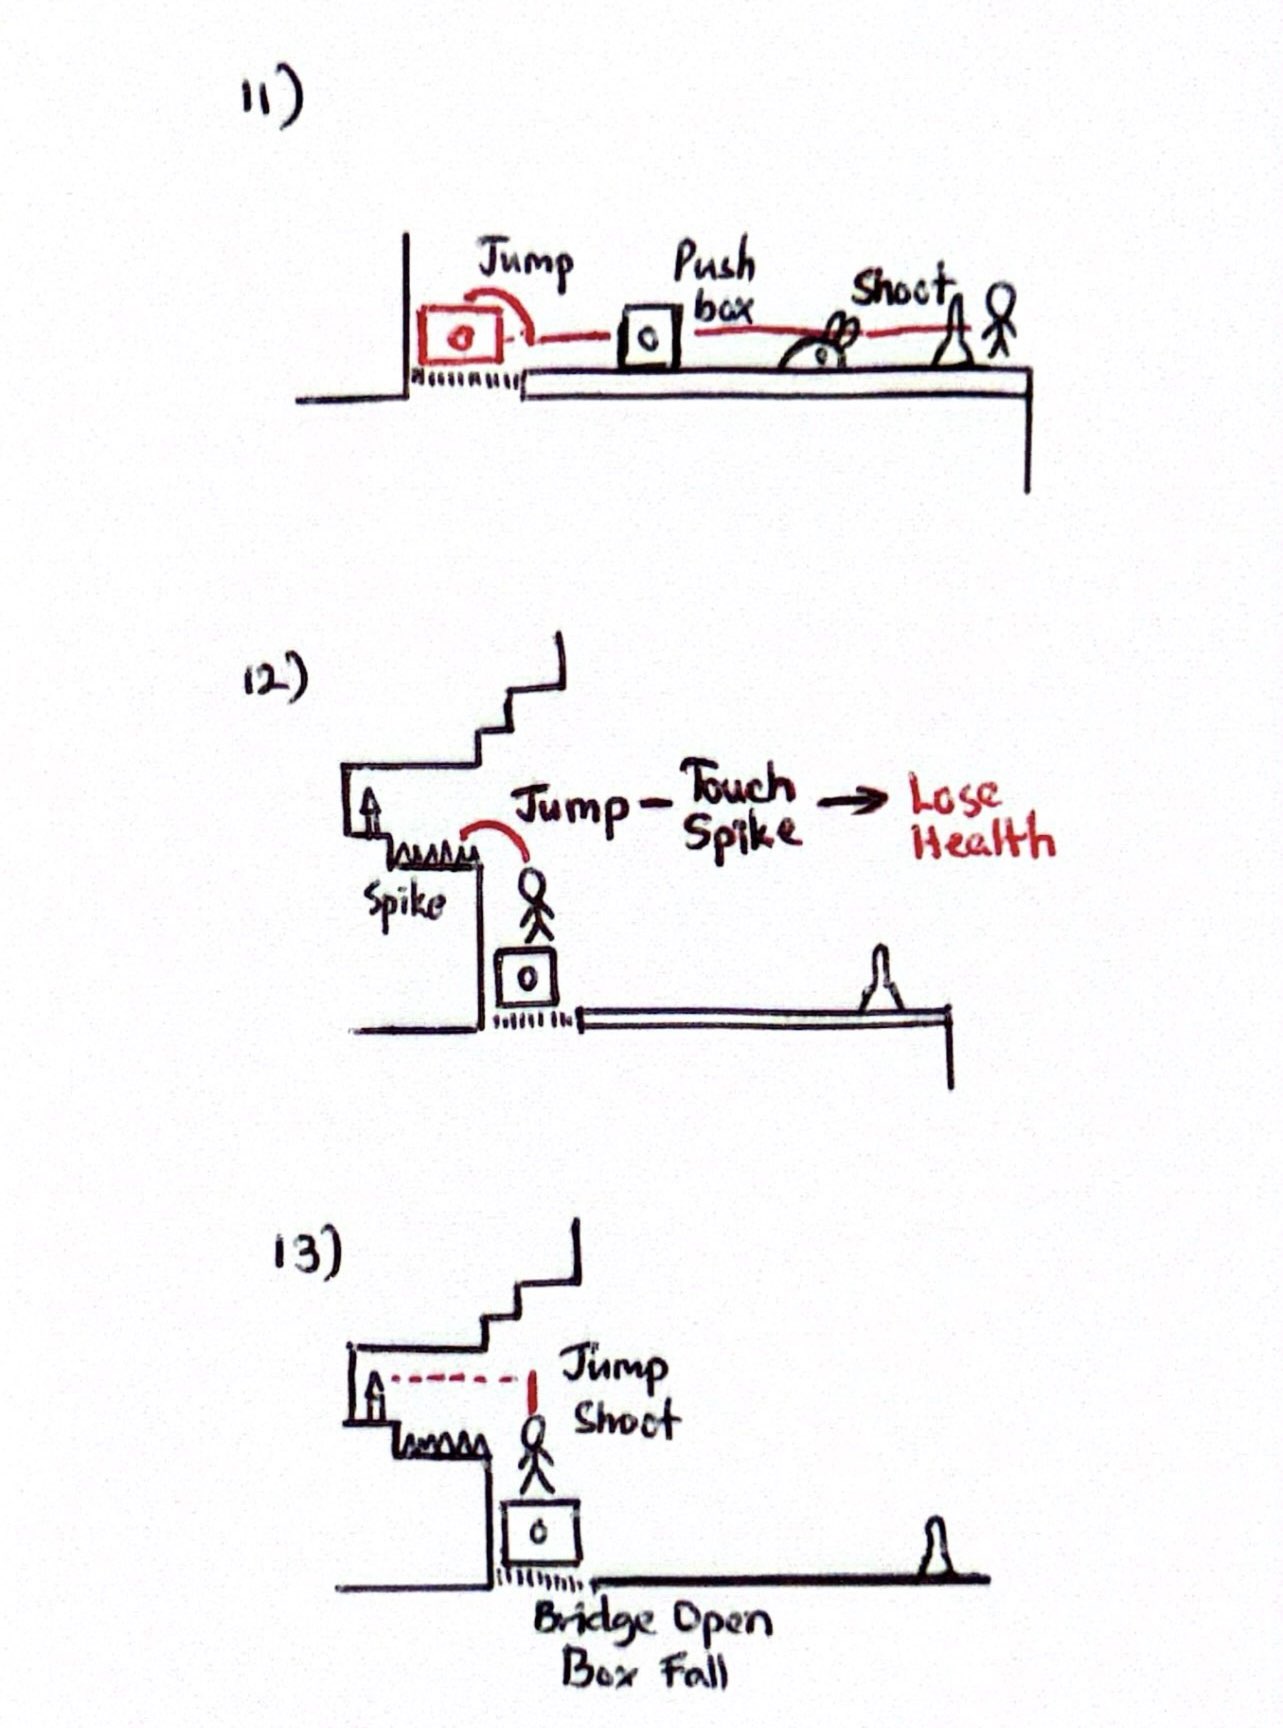 11)
Jump
Push
box
Shoot
12)
Jump - Touch
Spike → Lose
Health
Spike
13)
Jump
Shoot
Bridge Open
Box Fall